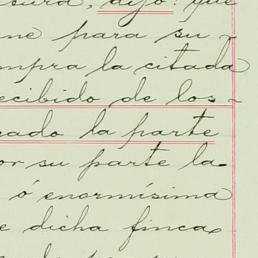 sura, dijo: que
ne para su
mpra la citada
ecibido de los
cado la parte
or su parte la
ó enormísima
e dicha finca